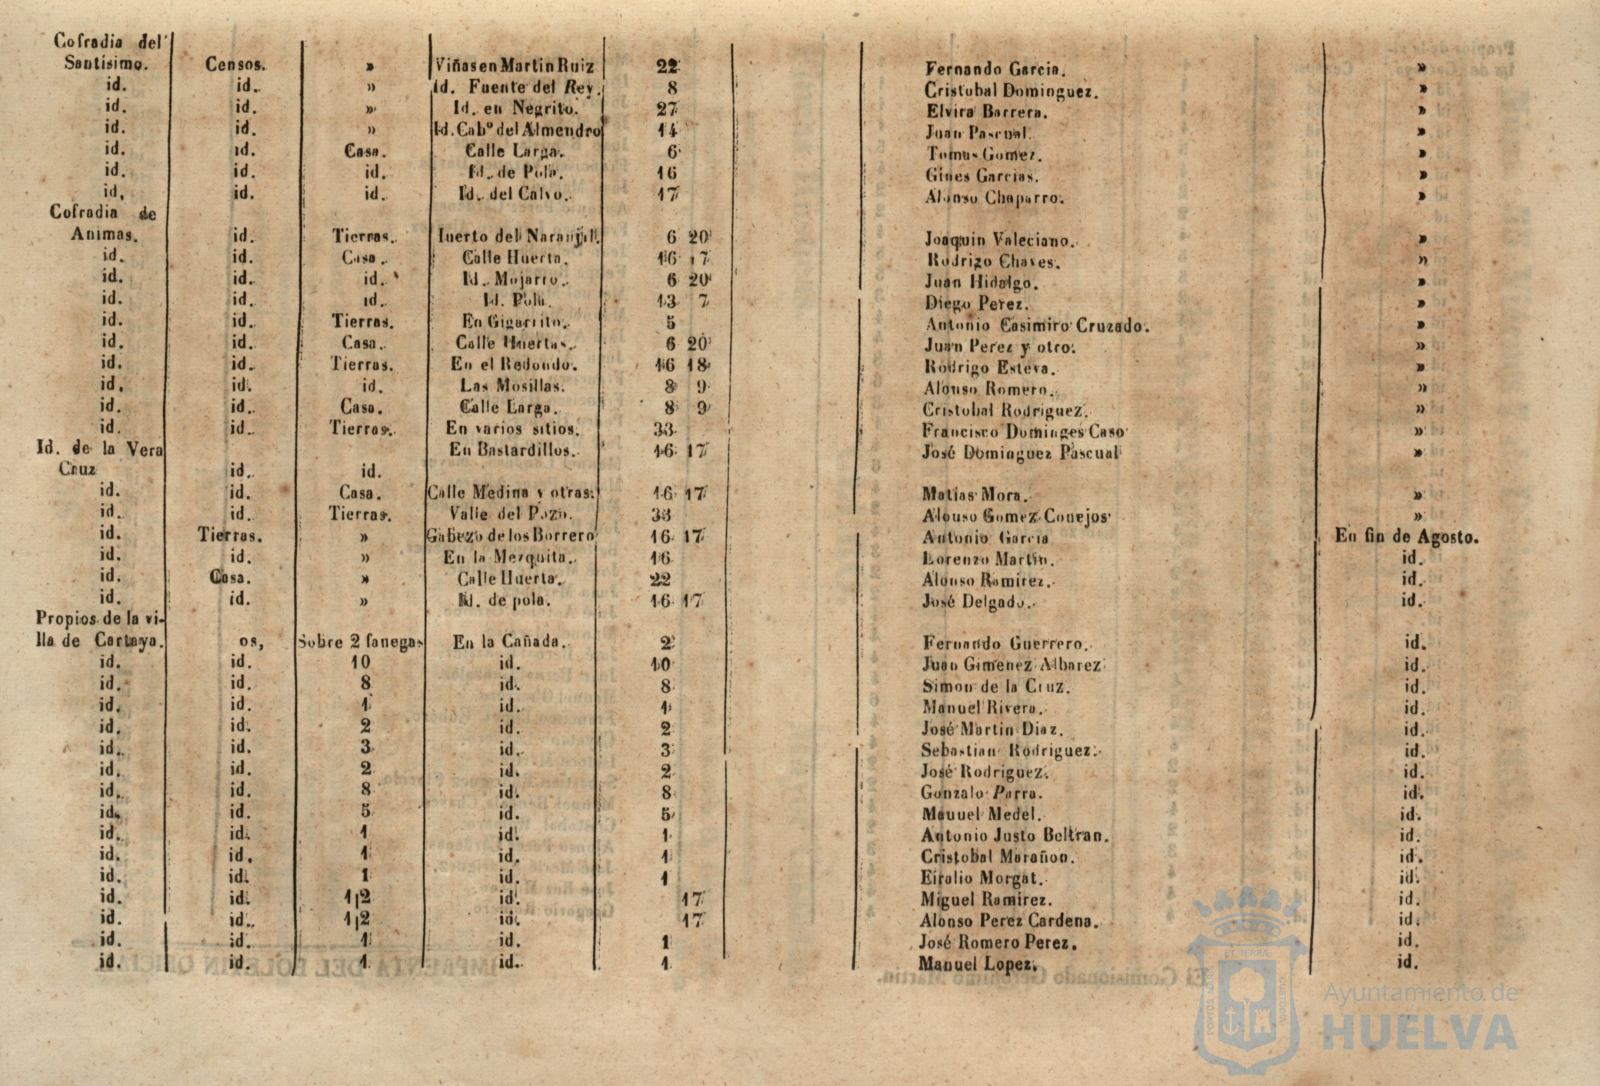 Cofradia del
Santisimo. Censos. » Viñas en Martin Ruiz 22 Fernando Garcia. »
id. id. » Id. Fuente del Rey. 8 Cristobal Dominguez. »
id. id. » Id. en Negrito. 27 Elvira Barrera. »
id. id. » Id. Cabº del Almendro 14 Juan Pascual. »
id. id. Casa. Calle Larga. 6 Tomas Gomez. »
id. id. id. Id. de Pola. 16 Gines Garcias. »
id. id. id. Id. del Calvo. 17 Alonso Chaparro. »
Cofradia de
Animas. id. Tierras. Iuerto del Naranjal. 6 20 Joaquin Valeciano. »
id. id. Casa. Calle Huerta. 16 17 Rodrigo Chaves. »
id. id. id. Id. Mojarro. 6 20 Juan Hidalgo. »
id. id. id. Id. Pola. 13 7 Diego Perez. »
id. id. Tierras. En Gigarrito. 5 Antonio Casimiro Cruzado. »
id. id. Casa. Calle Huertas. 6 20 Juan Perez y otro. »
id. id. Tierras. En el Redondo. 16 18 Rodrigo Esteva. »
id. id. id. Las Mosillas. 8 9 Alonso Romero. »
id. id. Casa. Calle Larga. 8 9 Cristobal Rodriguez. »
id. id. Tierras. En varios sitios. 33 Francisco Dominges Caso »
Id. de la Vera En Bastardillos. 16 17 José Dominguez Pascual »
Cruz id. id.
id. id. Casa. Calle Medina y otras. 16 17 Matias Mora. »
id. id. Tierras. Valle del Pozo. 33 Alonso Gomez Conejos »
id. Tierras. » Gabezo de los Borrero 16 17 Antonio Garcia En fin de Agosto.
id. id. » En la Mezquita. 16 Lorenzo Martin. id.
id. Casa. » Calle Huerta. 22 Alonso Ramirez. id.
id. id. » Id. de pola. 16 17 José Delgado. id.
Propios de la vi-
lla de Cartaya. os, Sobre 2 fanegas En la Cañada. 2 Fernando Guerrero. id.
id. id. 10 id. 10 Juan Gimenez Albarez id.
id. id. 8 id. 8 Simon de la Cruz. id.
id. id. 1 id. 1 Manuel Rivera. id.
id. id. 2 id. 2 José Martin Diaz. id.
id. id. 3 id. 3 Sebastian Rodriguez. id.
id. id. 2 id. 2 José Rodriguez. id.
id. id. 8 id. 8 Gonzalo Parra. id.
id. id. 5 id. 5 Manuel Medel. id.
id. id. 1 id. 1 Antonio Justo Beltran. id.
id. id. 1 id. 1 Cristobal Marañon. id.
id. id. 1 id. 1 Eiralio Morgat. id.
id. id. 1|2 id. 17 Miguel Ramirez. id.
id. id. 1|2 id. 17 Alonso Perez Cardena. id.
id. id. 1 id. 1 José Romero Perez. id.
id. id. 1 id. 1 Manuel Lopez. id.
Ayuntamiento de
HUELVA